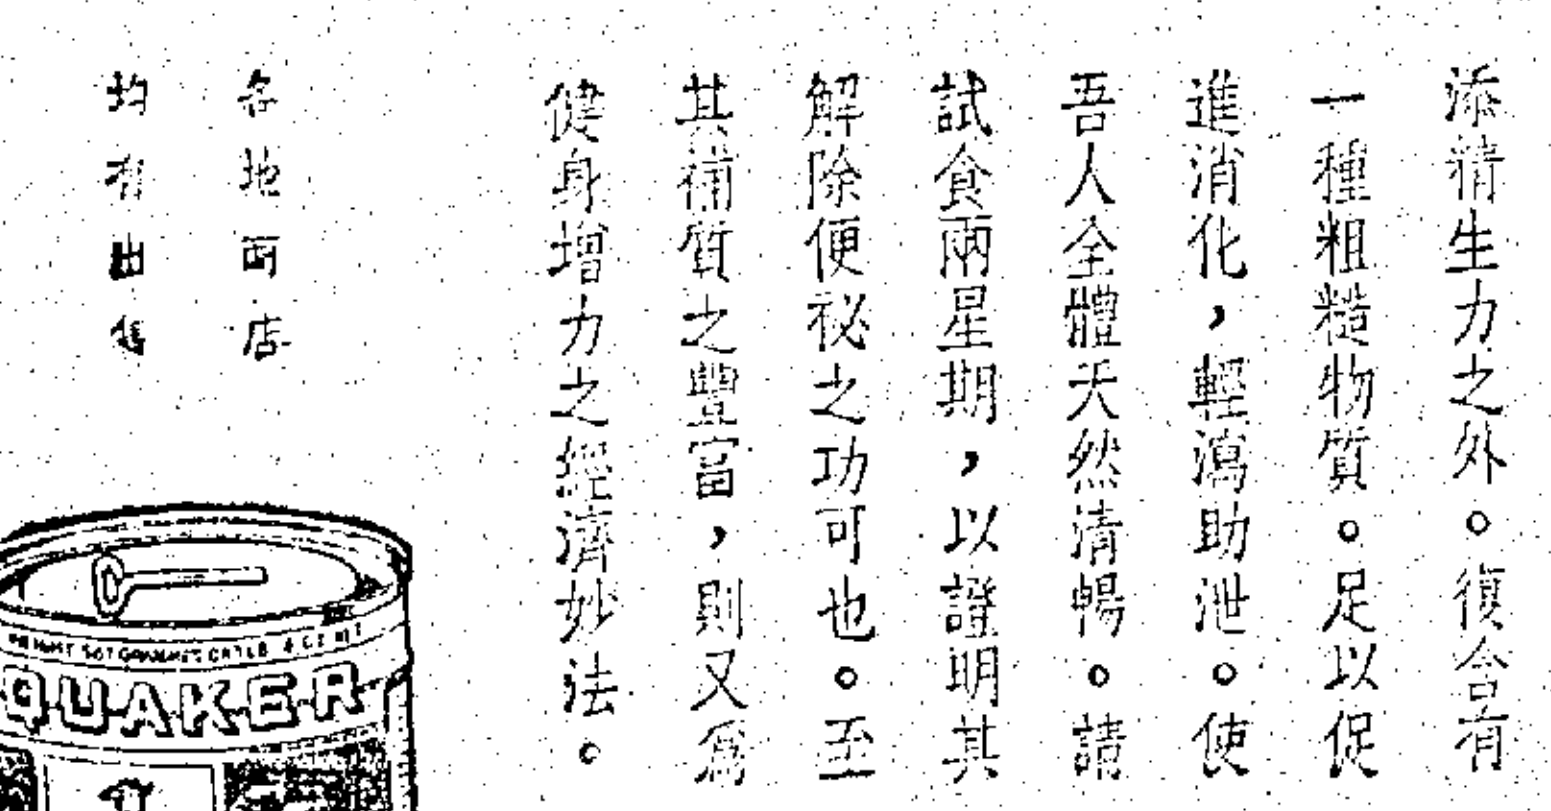 添精生力之外。復含有
一種粗糙物質。足以促
進消化,輕瀉助泄。使
吾人全體天然清暢。請
試食兩星期,以證明其
解除便祕之功可也。至
其補質之豐富,則又爲
健身增力之經濟妙法。
各地西店
均有出售
QUAKER